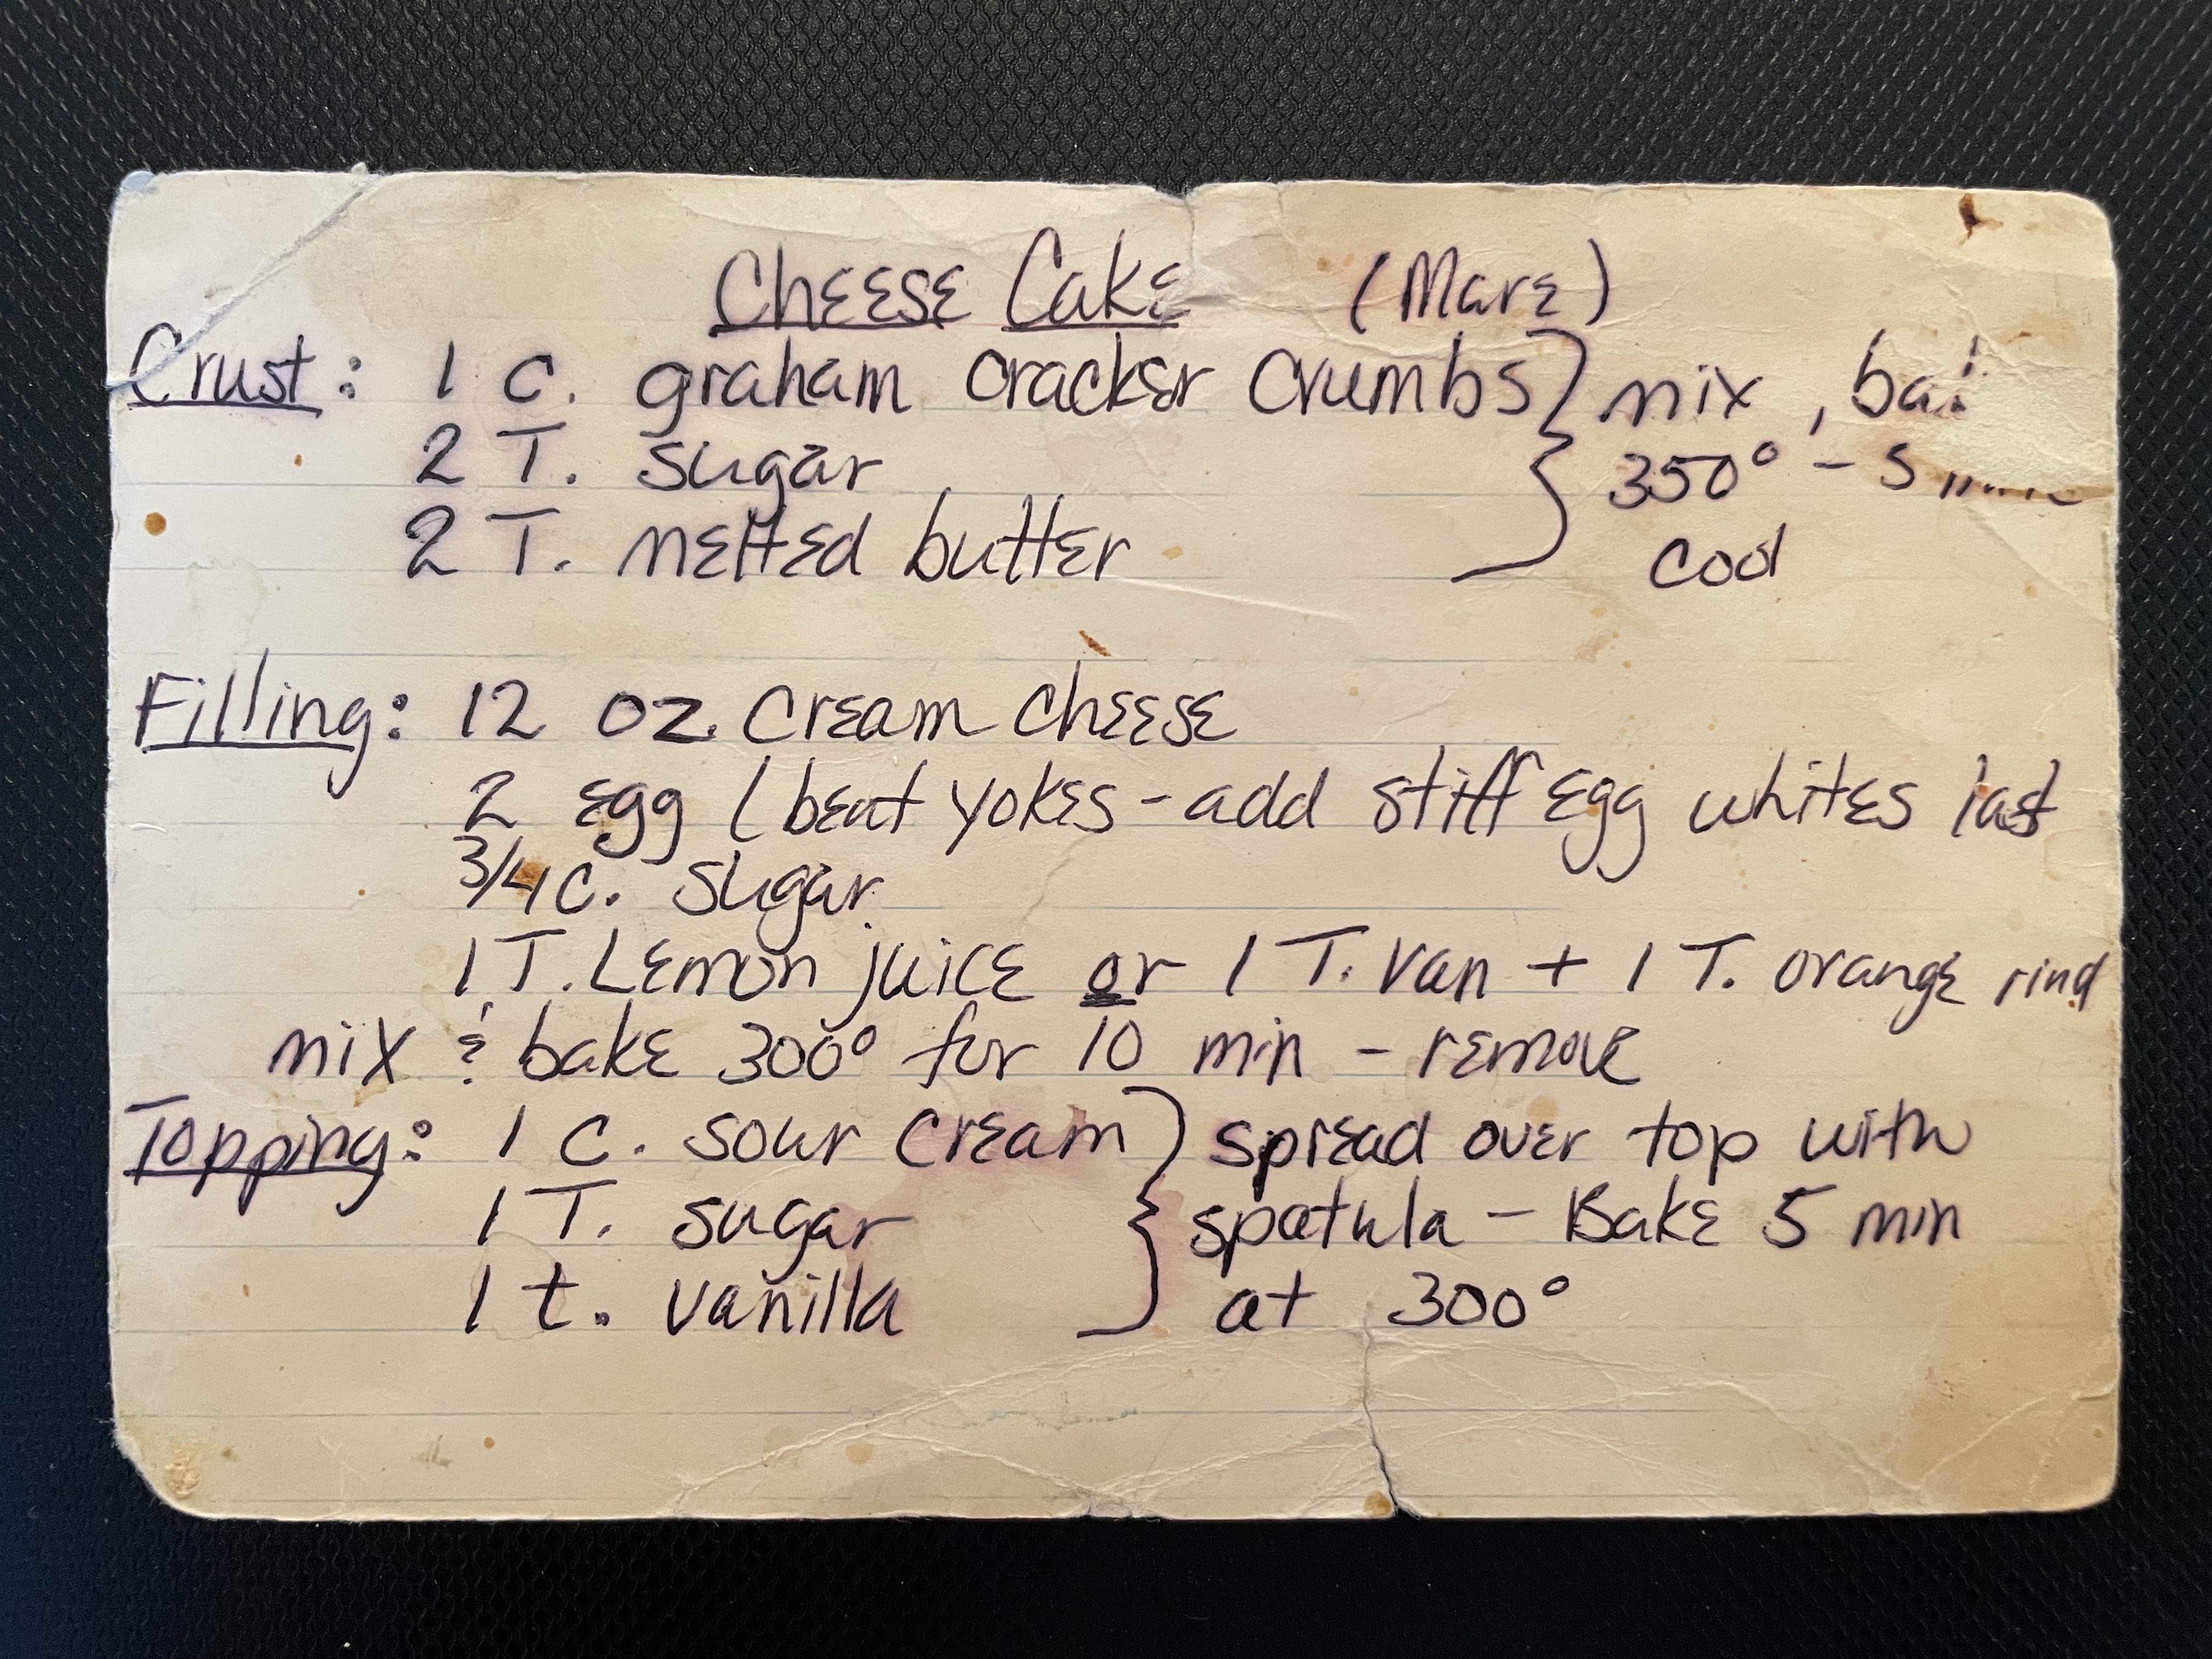 Cheese Cake (Mare)
Crust: 1 C. graham cracker crumbs } mix,
2 T. sugar 350° - 5
2 T. melted butter cool
Filling: 12 oz. cream cheese
2 egg (beat yokes - add stiff egg whites last
3/4 c. sugar
1 T. Lemon juice or 1 T. van + 1 T. orange rind
mix & bake 300° for 10 min - remove
Topping: 1 C. sour cream } spread over top with
1 T. sugar spatula - Bake 5 min
1 t. vanilla at 300°